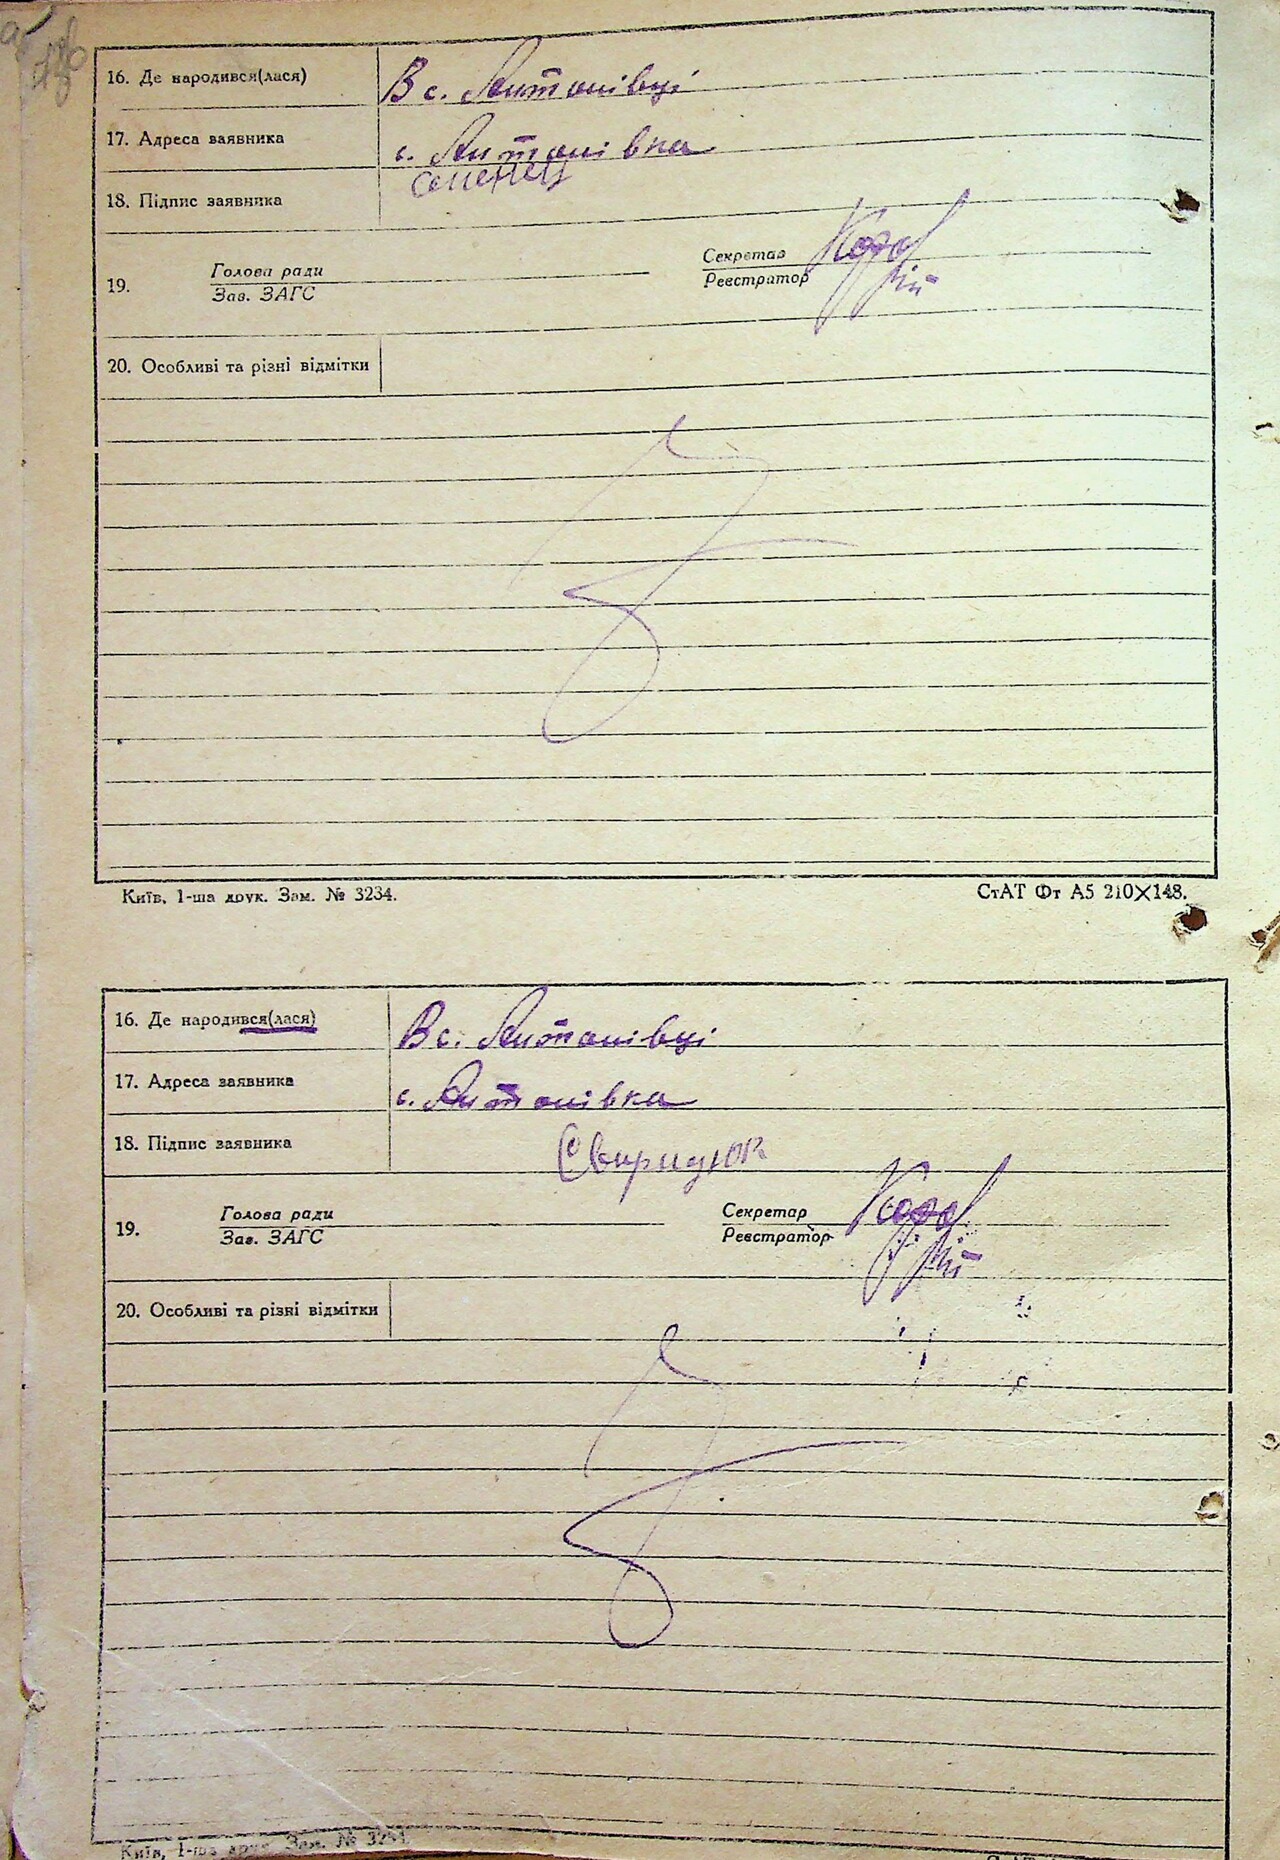 16. Де народився(лася) В с. Антонівці
17. Адреса заявника с. Антонівка
18. Підпис заявника Семенец
19. Голова ради Секретар
Зав. ЗАГС Реєстратор
20. Особливі та різні відмітки
Київ, 1-ша друк. Зам. № 3234. СтАТ Фт А5 210×148.
16. Де народився(лася) В с. Антонівці
17. Адреса заявника с. Антонівка
18. Підпис заявника Свиридюк
19. Голова ради Секретар
Зав. ЗАГС Реєстратор
20. Особливі та різні відмітки
Київ, 1-ша друк. Зам. № 3234.